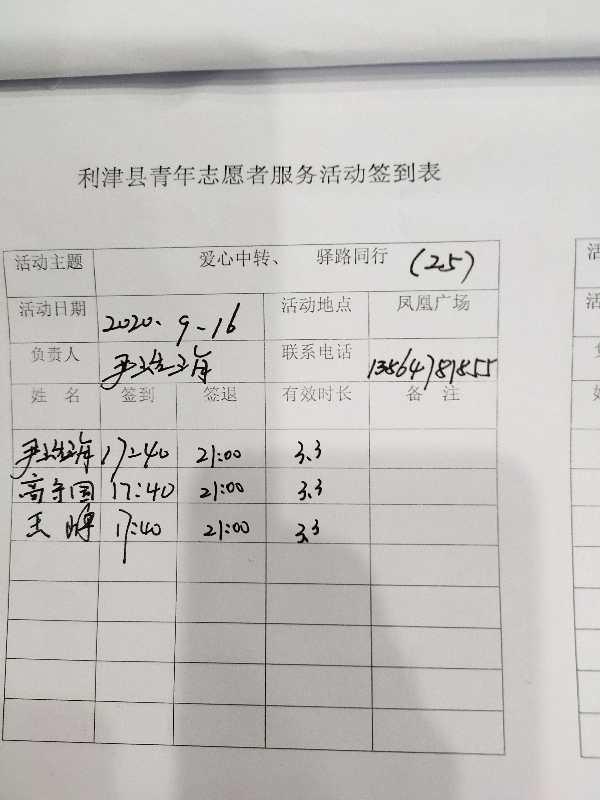 利津县青年志愿者服务活动签到表
活动主题 爱心中转、 驿路同行 (25)
活动日期 2020.9-16 活动地点 凤凰广场
负责人 联系电话 13864787855
姓 名 签到 签退 有效时长 备 注
17:40 21:00 3.3
高守国 17:40 21:00 3.3
王 17:40 21:00 3.3